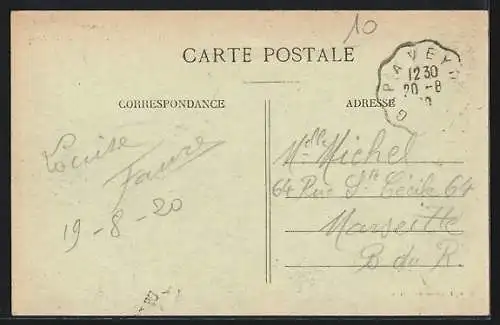 10
CARTE POSTALE
12 30
20 -8
CORRESPONDANCE
ADRESSE
Louise
Faure
19-8-20
Melle Michel
64 Rue Ste Cécile 64
Marseille
B du R.